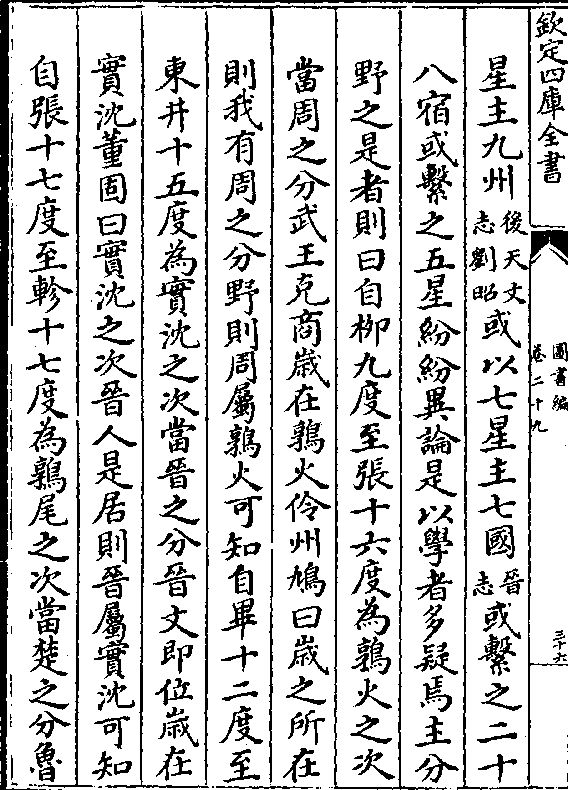 欽定四庫全書
圖書編
卷二十九
三十六
星主九州後天文志劉昭或以七星主七國晉志或繫之二十
八宿或繫之五星紛紛異論是以學者多疑焉主分
野之是者則曰自柳九度至張十六度為鶉火之次
當周之分武王克商歲在鶉火伶州鳩曰歲之所在
則我有周之分野則周屬鶉火可知自畢十二度至
東井十五度為實沈之次當晉之分晉文即位歲在
實沈董因曰實沈之次晉人是居則晉屬實沈可知
自張十七度至軫十七度為鶉尾之次當楚之分魯